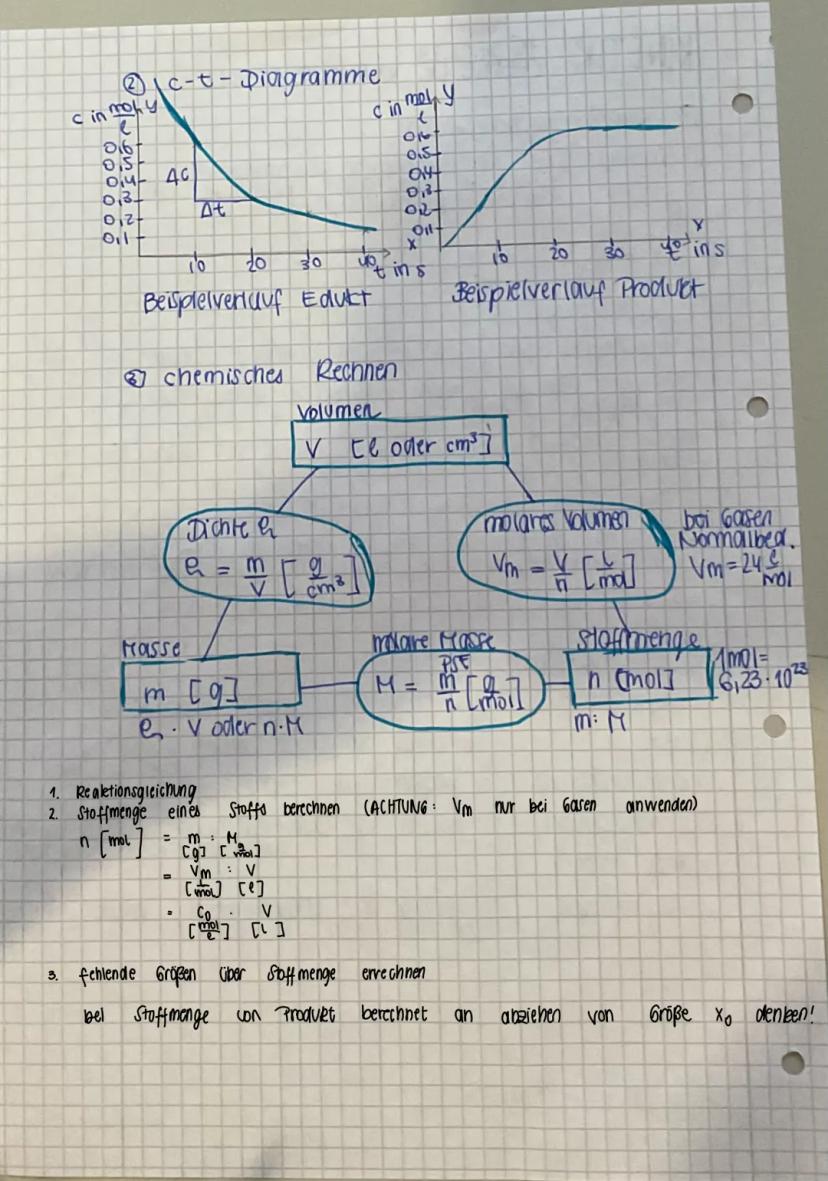 ② c-t-Diagramme
c in mol/l y
0,6
0,5
0,4
0,3
0,2
0,1
Δc
Δt
10 20 30 40
t in s
x
Beispielverlauf Edukt
c in mol/l y
0,6
0,5
0,4
0,3
0,2
0,1
10 20 30 40
t in s
x
Beispielverlauf Produkt
③ chemisches Rechnen
Volumen
V [l oder cm³]
Dichte ρ
ρ = m/V [g/cm³]
molares Volumen
Vm = V/n [l/mol]
bei Gasen
Normalbed.
Vm = 24 l/mol
Masse
m [g]
ρ · V oder n · M
molare Masse
PSE
M = m/n [g/mol]
Stoffmenge
n [mol]
m : M
1mol =
6,23 · 10²³
1. Reaktionsgleichung
2. Stoffmenge eines Stoffs berechnen (ACHTUNG: Vm nur bei Gasen anwenden)
n [mol] = m : M
[g] [g/mol]
= Vm : V
[l/mol] [l]
= c₀ · V
[mol/l] [l]
3. fehlende Größen über Stoffmenge errechnen
bei Stoffmenge von Produkt berechnet an abziehen von Größe x₀ denken!